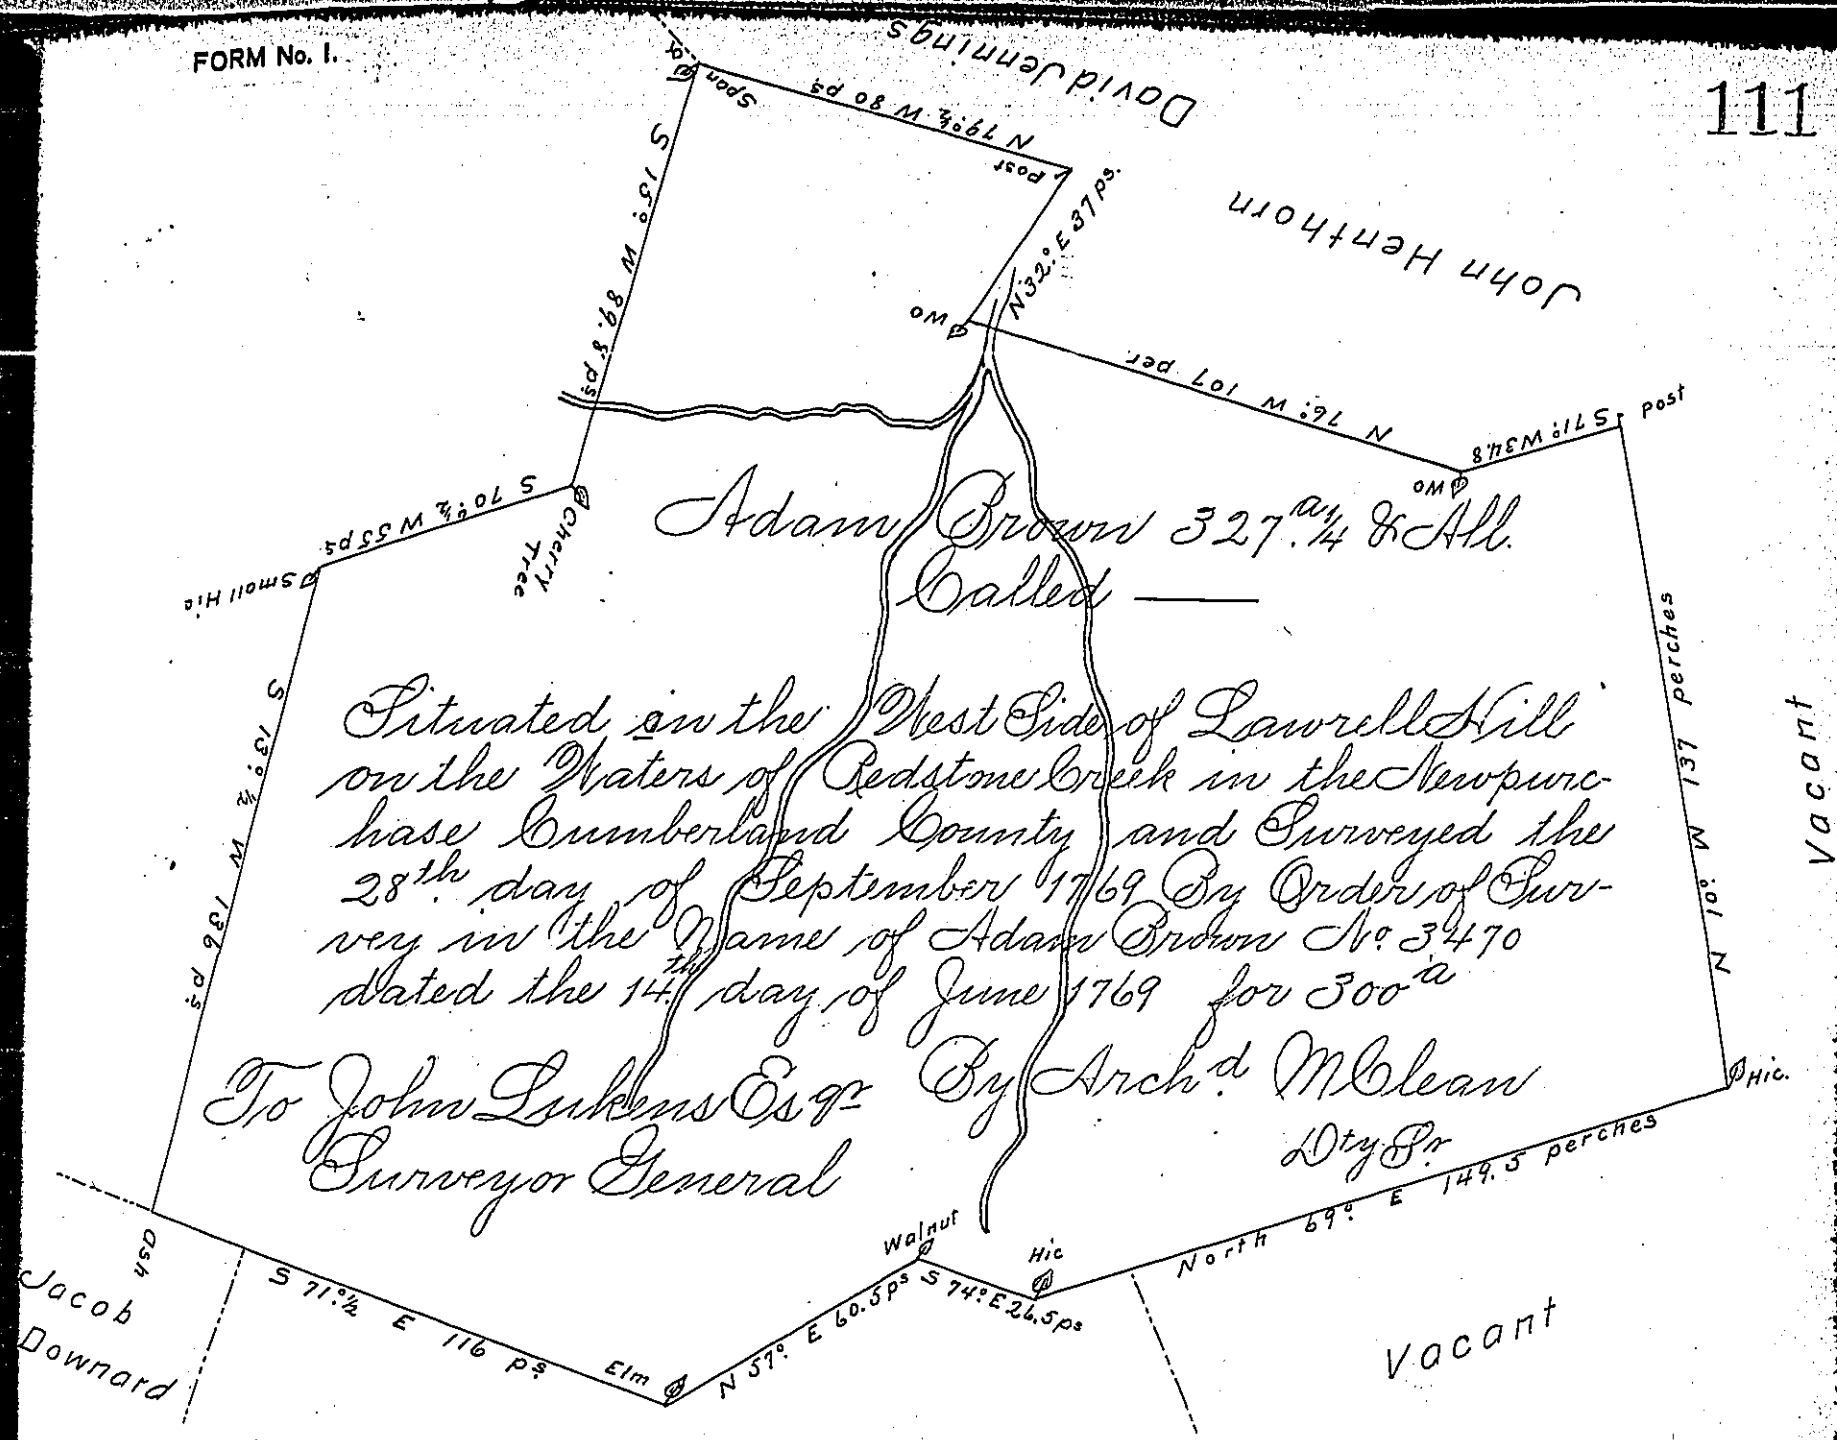 FORM No. 1.
111
David Jennings
John Henthorn
Span
N 79°½ W 80 ps
Post
N 32° E 37 ps.
WO
N 76° W 107 per
WO
S 71° W 34.8
post
S 15° W 89.8 ps
Cherry
Tree
S 70°½ W 55 ps
Small Hic
S 13°½ W 136 ps
N 10° W 137 perches
Vacant
Adam Brown 327.ᵃ¼ & All.
Called ——
Situated in the West Side of Lawrell Hill
on the Waters of Redstone Creek in the Newpurc-
hase Cumberland County and Surveyed the
28th. day of September 1769 By Order of Sur-
vey in the Name of Adam Brown No. 3470
dated the 14th. day of June 1769 for 300 a
To John Lukens Esqr
Surveyor General
By Archd. McClean
Dty Sr
Hic.
North 69° E 149.5 perches
Hic
S 74° E 26.5 ps
Walnut
N 57° E 60.5 ps
Elm
S 71°½ E 116 ps
Ash
Jacob
Downard
Vacant